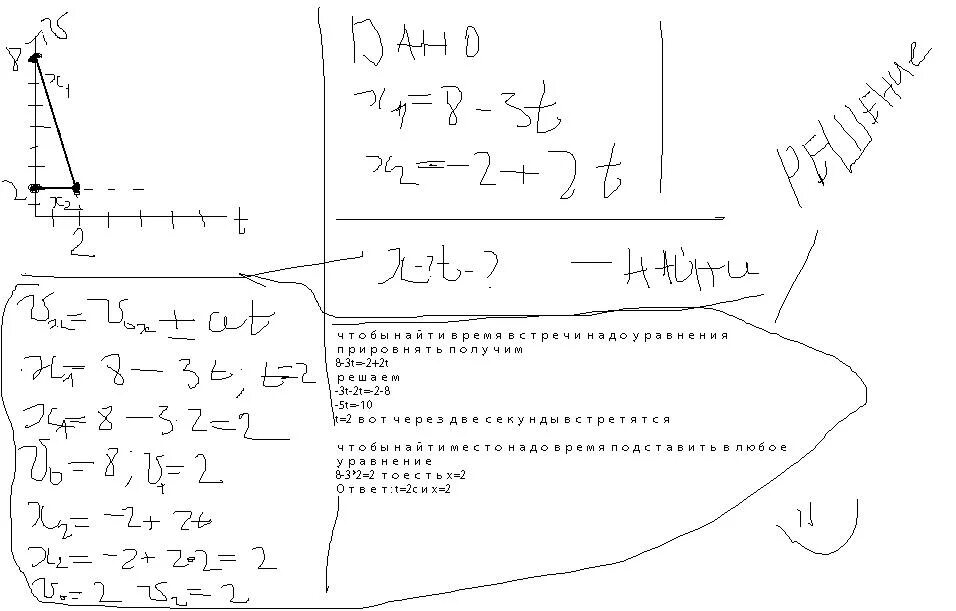 v
8
x₁
2
x₂
t
2
ДАНО
x₁=8-3t
x₂=-2+2t
x-?t-?
-НАЙТИ
РЕШЕНИЕ
vₓ=v₀ₓ±at
x₁=8-3t; t=2
x₁=8-3·2=2
v₀=8; v₁=2
x₂=-2+2t
x₂=-2+2·2=2
v₀=2 v₂=2
чтобы найти время встречи надо уравнения
прировнять получим
8-3t=-2+2t
решаем
-3t-2t=-2-8
-5t=-10
t=2 вот через две секунды встретятся
чтобы найти место надо время подставить в любое
уравнение
8-3*2=2 то есть x=2
Ответ: t=2с и x=2